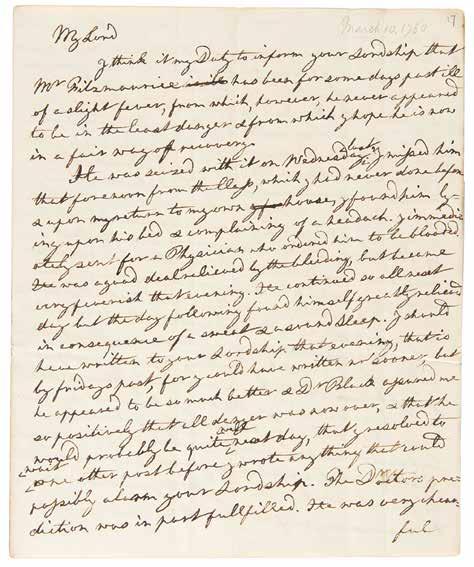 March 10, 1760
17
My Lord
I think it my Duty to inform your Lordship that
Mr Fitzmaurice has been for some days past ill
of a slight fever, from which, however, he never appeared
to be in the least danger & from which I hope he is now
in a fair way of recovery.
He was seized with it on Wednesday last. I missed him
that forenoon from the Class, which he had never done before
& upon my return to my own house, I found him ly-
ing upon his bed & complaining of a headach. I immedi
ately sent for a Physician who ordered him to be blooded.
He was a good deal relieved by the bleeding, but became
very feverish that evening. He continued so all next
day but the day following found himself greatly relieved
in consequence of a sweat & a sound sleep. I should
have written to your Lordship that evening, that is
by fridays post, for I could have written no sooner, but
he appeared to be so much better & Dr Black assured me
so positively that all danger was now over, & that he
would probably be quite well next day, that I resolved to
wait one other post before I wrote any thing that could
possibly alarm your Lordship. The Doctors pre-
diction was in part fullfilled. He was very chear-
ful